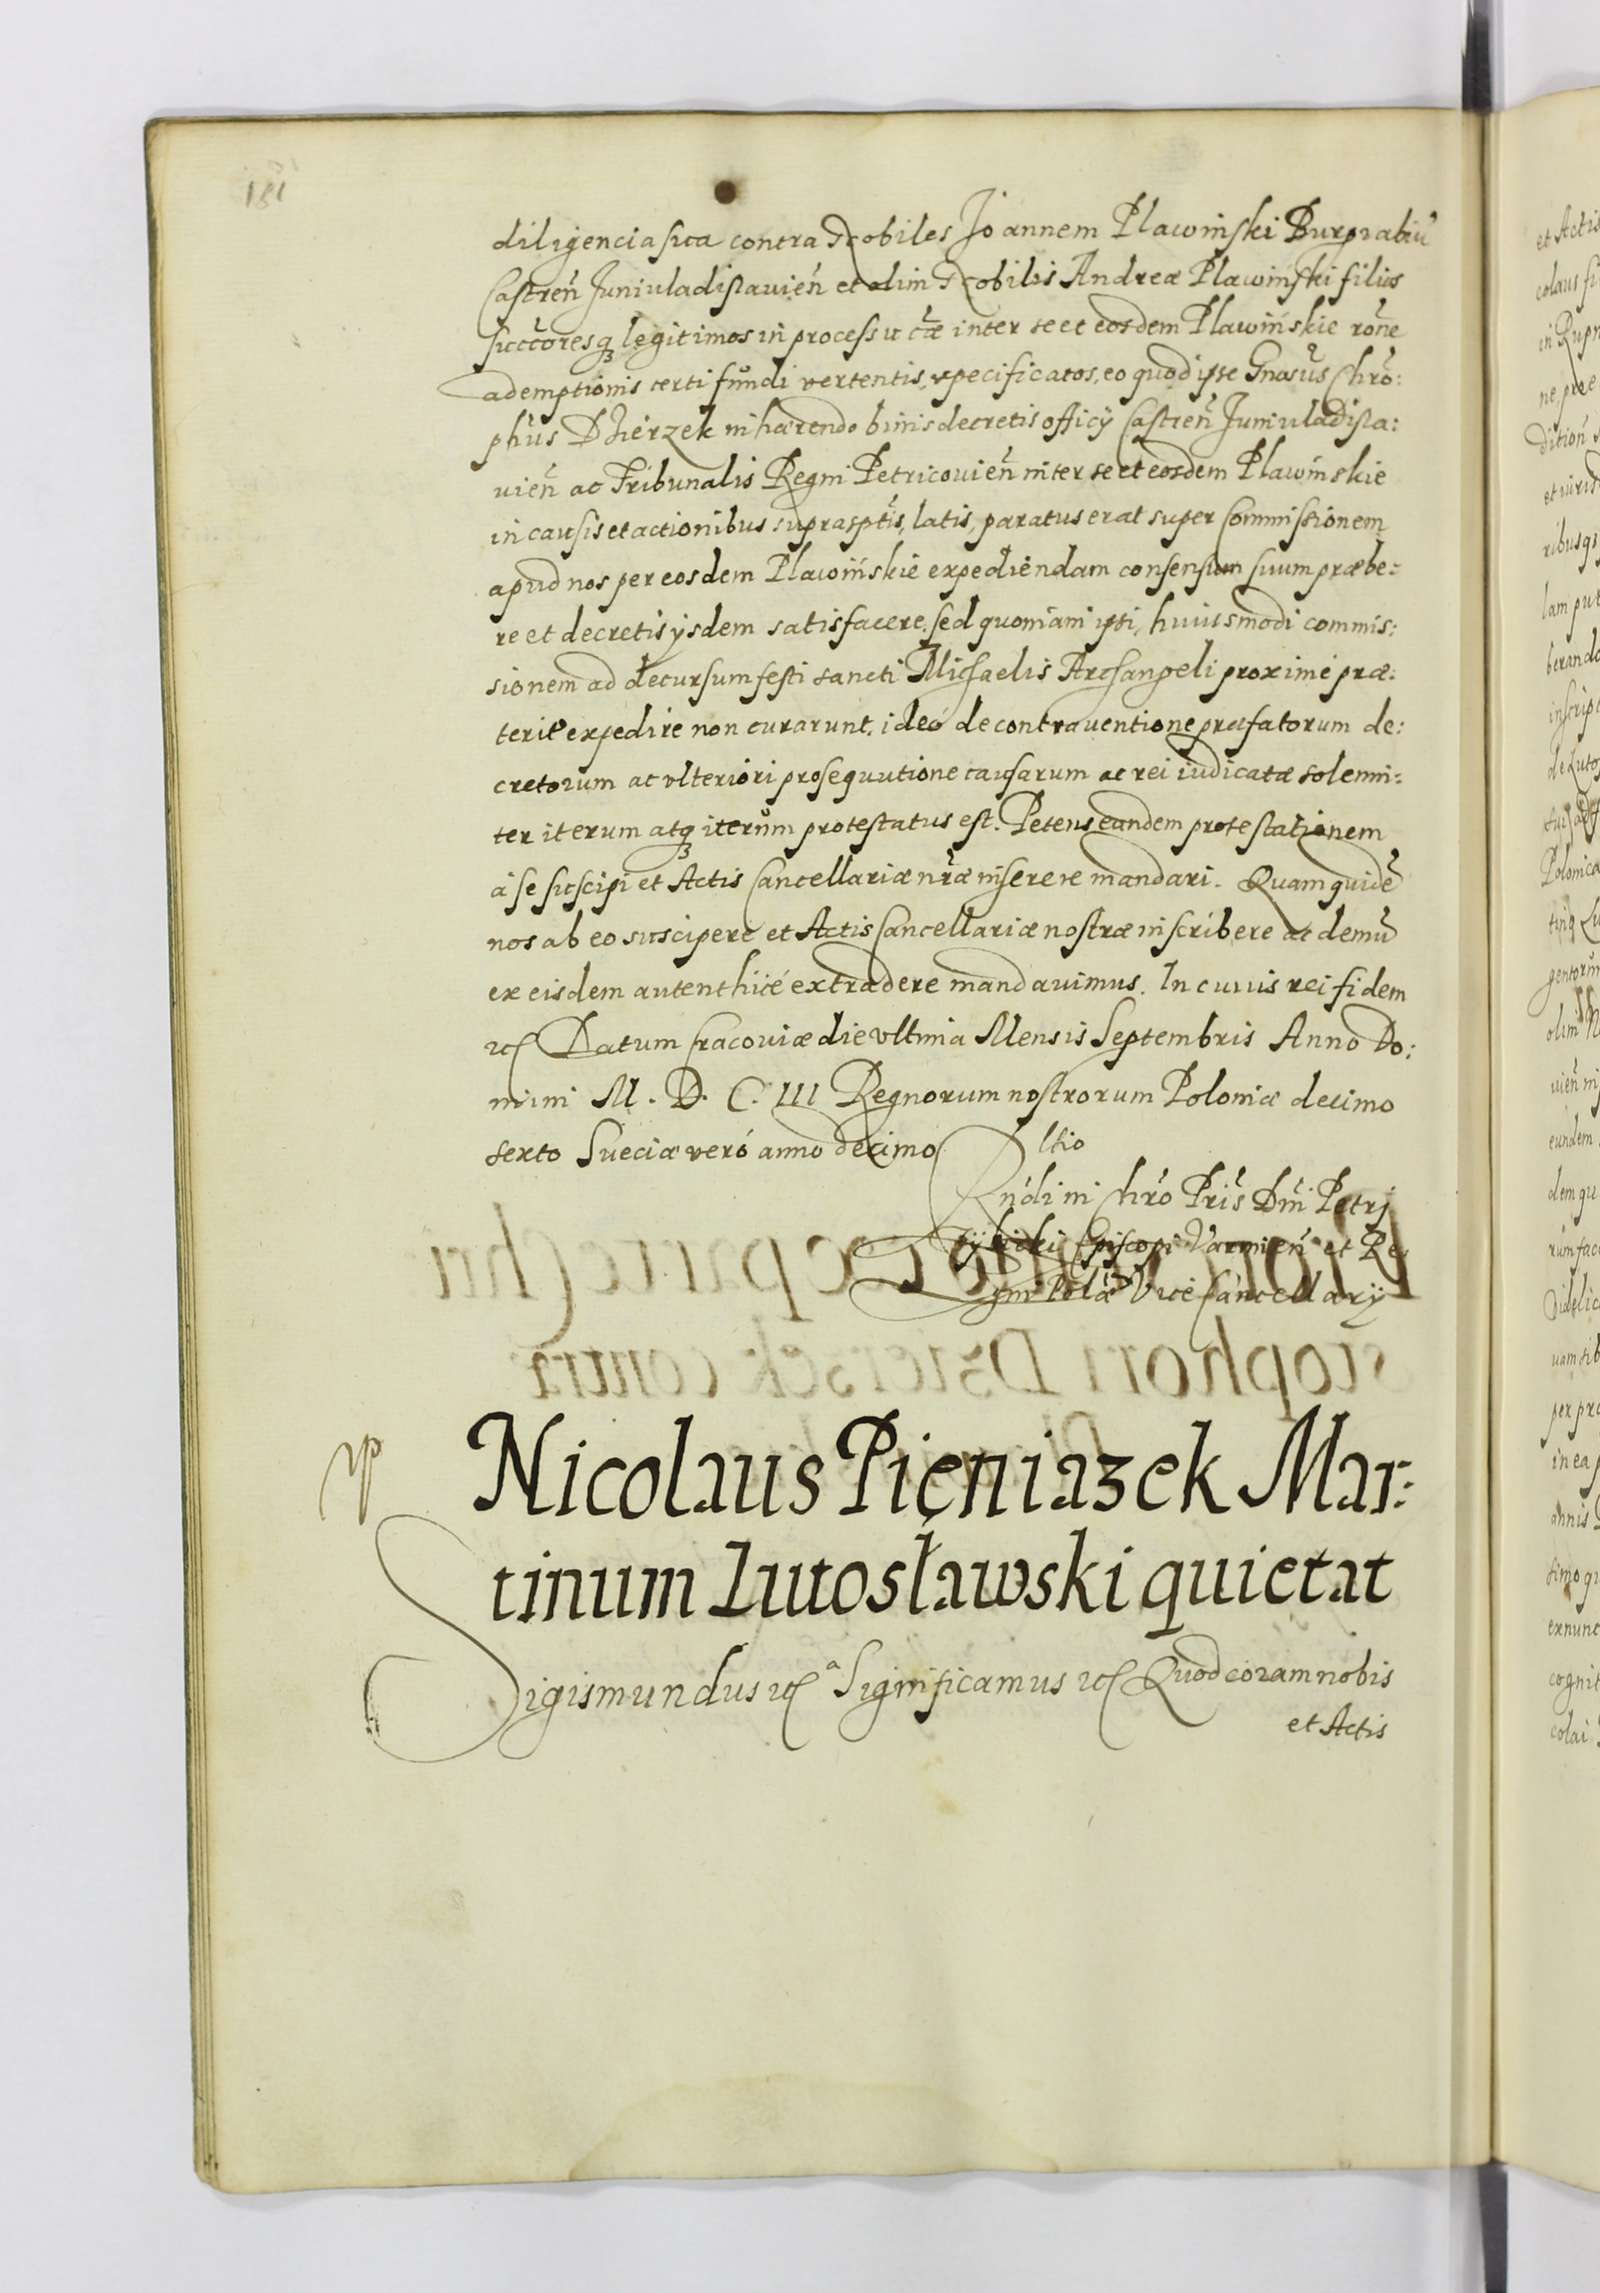 181
diligencia sua contra Nobiles Joannem Plawinski Burgrabiū
Castren̄ Juniuladislauien̄ et olim Nobilis Andreæ Plawinski filios
succ̄oresq₃ legitimos in processu c̄æ inter se et eosdem Plawińskie rōne
ademptionis certi fundi vertentis, specificatos, eo quod ipse Gnosūs Chrō:
phūs Dzierzek inhærendo binis decretis officÿ Castren̄ Juniuladisla:
uien̄ ac Tribunalis Regni Petricouien̄ inter se et eosdem Plawinskie
in causis et actionibus suprasptīs, latis, paratus erat super Commissionem
apud nos per eosdem Plawińskie expediendam consensum suum præbe:
re et decretis ÿsdem satisfacere, sed quoniam ipsi, huiusmodi commis:
sionem ad decursum festi sancti Michaelis Archangeli proximé præ:
terit expedire non curarunt, ideó de contrauentione præfatorum de:
cretorum ac vlteriori prosequutione causarum ac rei iudicatæ solenni:
ter iterum atq₃ iterum protestatus est. Petens eandem protestationem
á se suscipi et Actis Cancellariæ nr̄æ inserere mandari. Quam quidē
nos ab eo suscipere et Actis Cancellariæ nostræ inscribere ac demū
ex eisdem autenthicé extradere mandauimus. In cuius rei fidem
etc Datum Cracouiæ die vltima Mensis Septembris Anno Do:
mini M. D. C. III Regnorum nostrorum Poloniæ decimo
sexto Sueciæ veró anno decimo
Rltio
Rn̄di in Chrō Prīs Dn̄i Petri
Tylicki Episcopi Varmien̄ et Re
gni Polæ Vice Cancellarÿ
Nicolaus Pieniązek Mar:
tinum Lutosławski quietat
Sigismundus etc a Significamus etc Quod coram nobis
et Actis